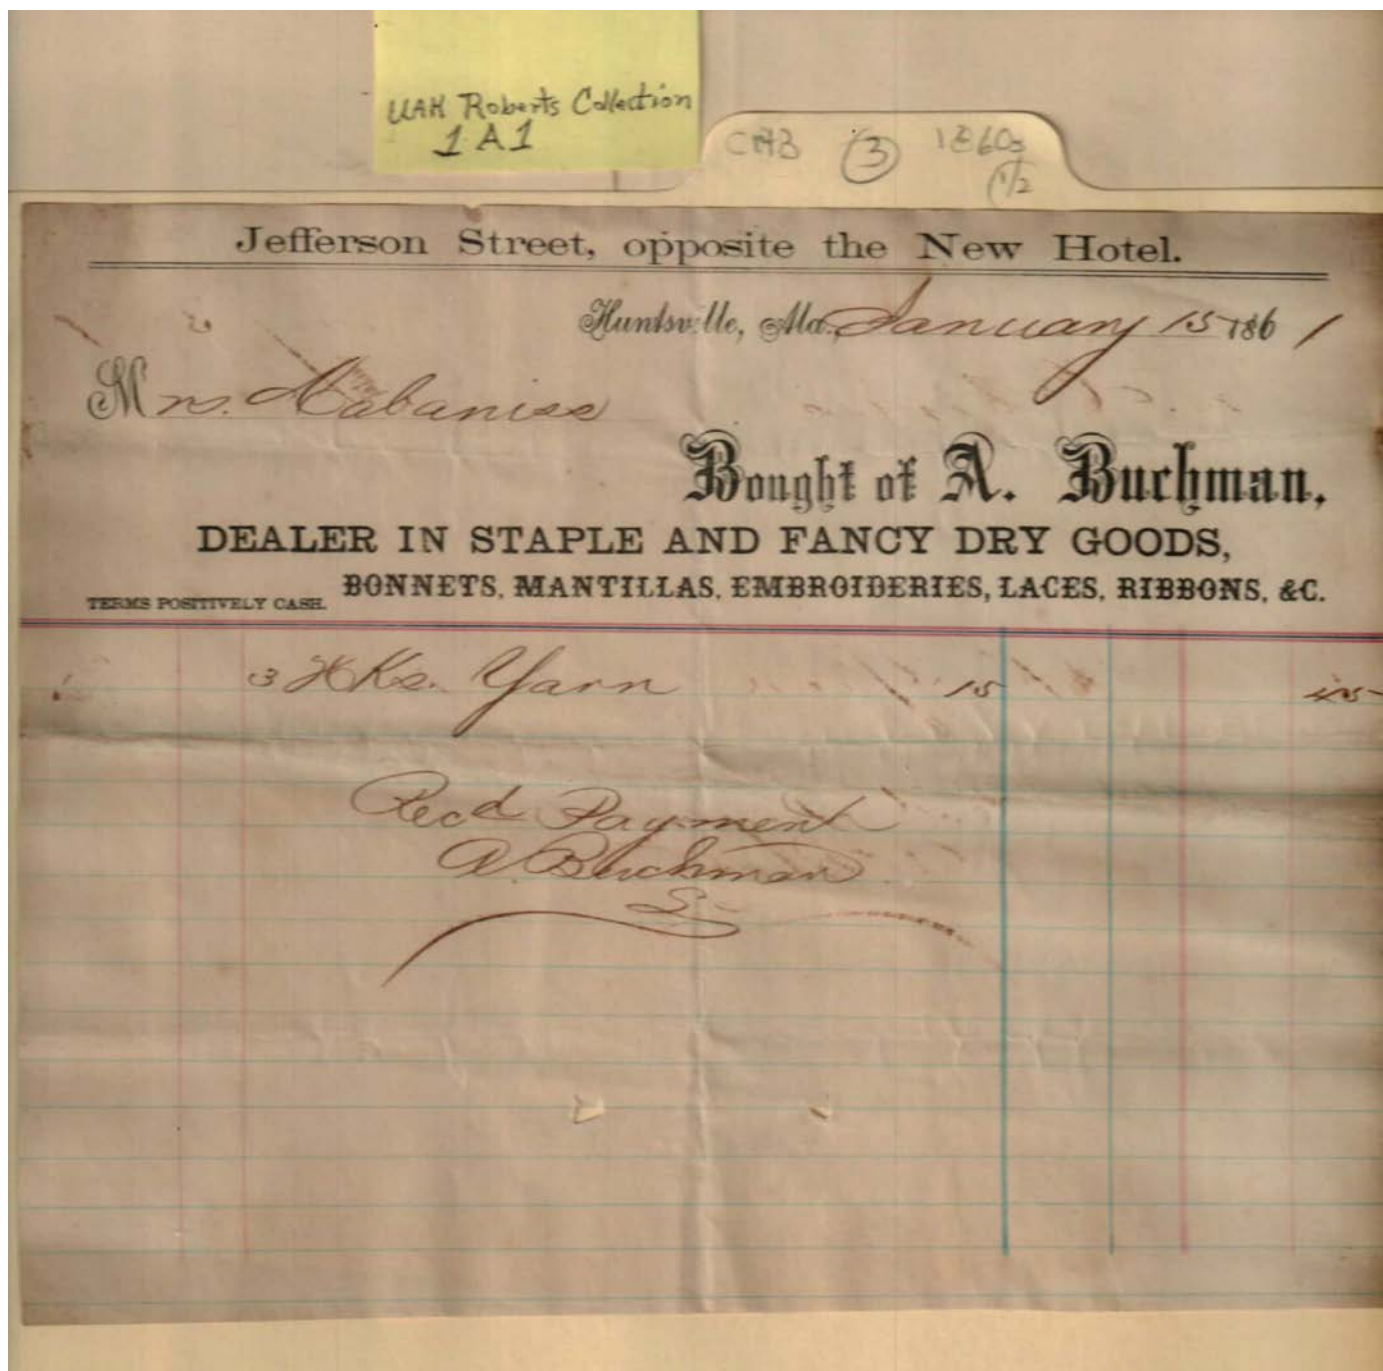 UAH Roberts Collection
1 A 1
CAB 3 1860s
1/2
Jefferson Street, opposite the New Hotel.
Huntsville, Ala., January 15 1861
Mrs. Cabaniss
Bought of A. Buchman,
DEALER IN STAPLE AND FANCY DRY GOODS,
TERMS POSITIVELY CASH. BONNETS, MANTILLAS, EMBROIDERIES, LACES, RIBBONS, &C.
3 Hks. Yarn 15 45
Recd Payment
A. Buchman